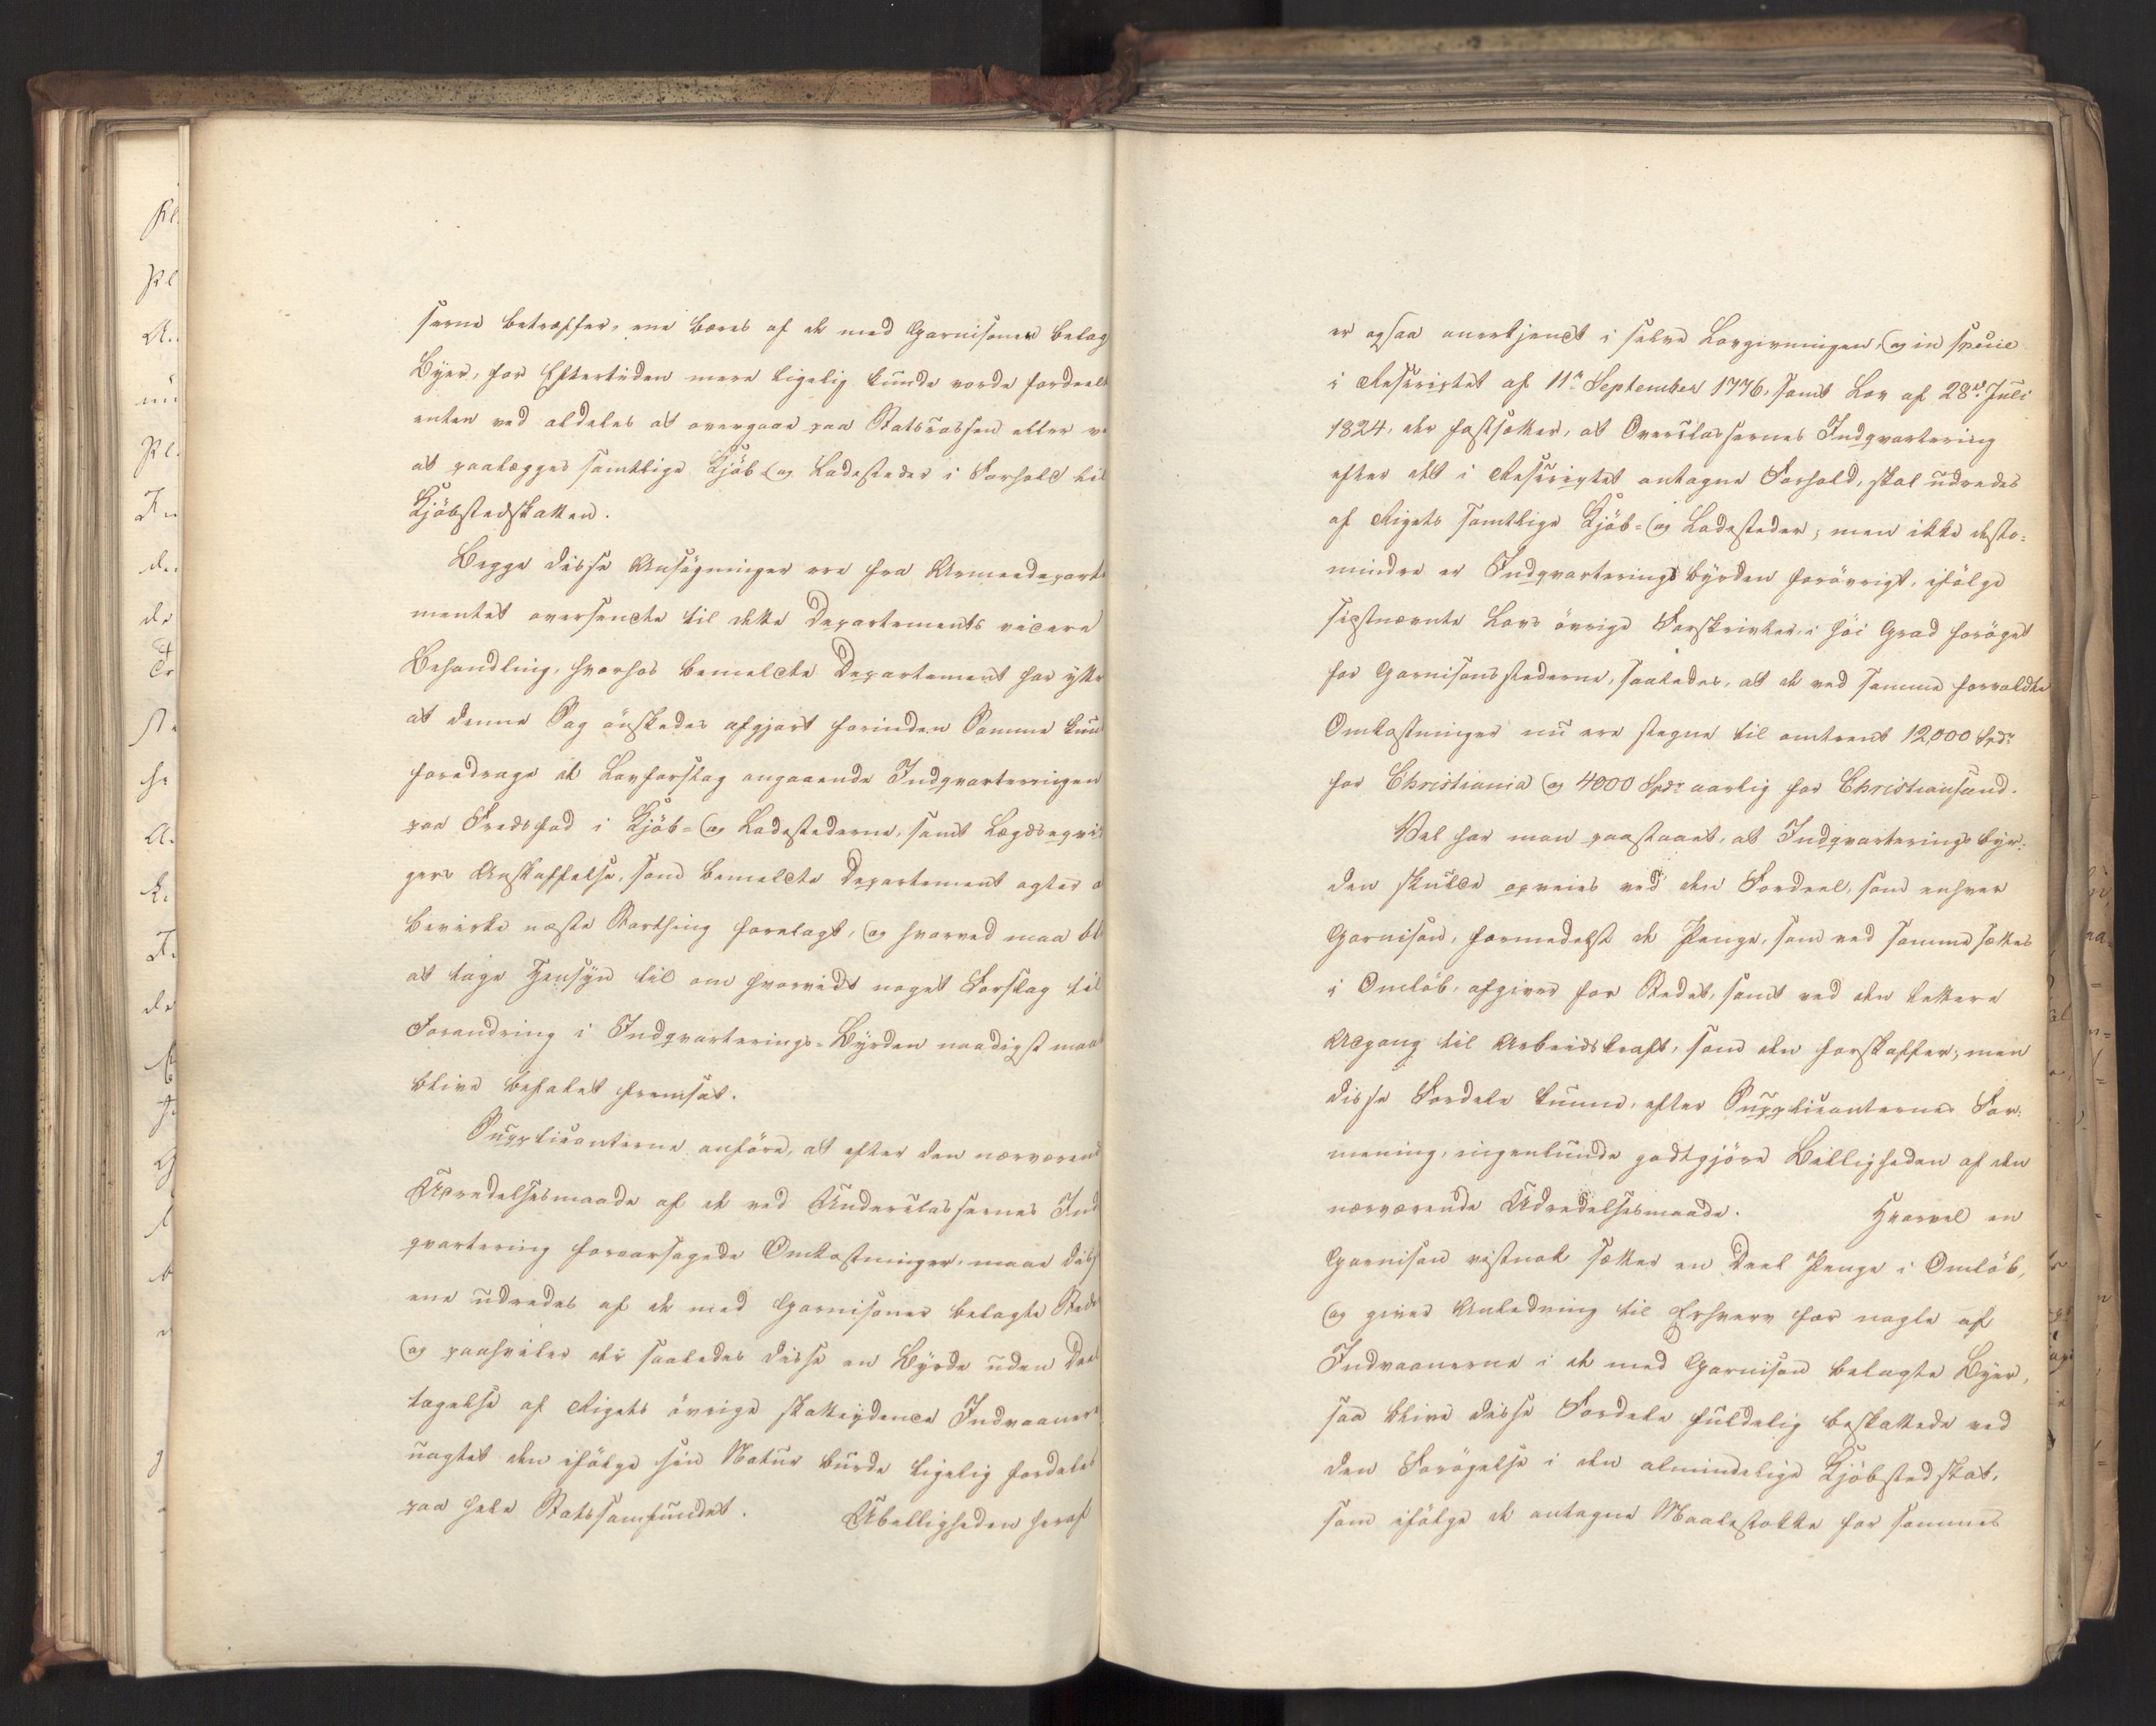 serne betræffer, ene bæres af de med Garnisoner belag
Byer, for Eftertiden mere ligelig kunde vorde fordeelt
enten ved aldeles at overgaae paa Statscassen eller ve
at paalægges samtlige Kjöb- og Ladesteder i Forhold til
Kjöbstedskatten.
Begge disse Ansögninger ere fra Armeedeparte
mentet oversendte til dette Departements videre
Behandling, hvorhos bemeldte Departement har yttr
at denne Sag önskedes afgjort forinden Samme kun
foredrage et Lovforslag angaaende Indqvarteringen
paa Fredsfod i Kjöb- og Ladestederne, samt Lægdseqvi
gers Anskaffelse, som bemeldte Departement agter a
bevirke næste Storthing forelagt, og hvorved maa bli
at tage Hensyn til om hvorvidt noget Forslag til
Forandring i Indqvarterings-Byrden naadigst maat
blive befalet fremsat.
Supplicanterne anföre, at efter den nærværend
Udredelsesmaade af de ved Underclassernes Ind
qvartering foraarsagede Omkostninger, maae diss
ene udredes af de med Garnisoner belagte Stede
og paahviler der saaledes disse en Byrde uden Deel
tagelse af Rigets övrige skatteydende Indvaanere
uagtet den ifölge sin Natur burde ligelig fordeles
paa hele Statssamfundet. Ubilligheden heraf
er ogsaa anerkjendt i selve Lovgivningen, og in specie
i Rescriptet af 11te September 1776, samt Lov af 28de Juli
1824, der fastsætter, at Overclassernes Indqvartering
efter det i Rescriptet antagne Forhold, skal udredes
af Rigets samtlige Kjöb- og Ladesteder; men ikke desto-
mindre er Indqvarterings byrden forövrigt, ifölge
sidstnævnte Lovs övrige Forskrivter, i höi Grad foröget
for Garnisonsstederne, saaledes, at de ved samme forvoldte
Omkostninger nu ere stegne til omtrent 12,000 Spdr
for Christiania og 4000 Spdr aarlig for Christiansand.
Vel har man paastaaet, at Indqvarterings byr-
den skulde opveies ved den Fordeel, som enhver
Garnison, formedelst de Penge, som ved samme sættes
i Omlöb, afgiver for Stedet, samt ved den lettere
Adgang til Arbeidskraft, som den forskaffer; men
disse Fordele kunne, efter Supplicanternes For-
mening, ingenlunde godtgjöre Billigheden af den
nærværende Udredelsesmaade. Hvorvel en
Garnison vistnok sætter en Deel Penge i Omlöb,
og giver Anledning til Erhverv for nogle af
Indvaanerne i de med Garnison belagte Byer,
saa blive disse Fordele fuldelig beskattede ved
den Forögelse i den almindelige Kjöbstedskat,
som ifölge de antagne Maalestokke for sammes